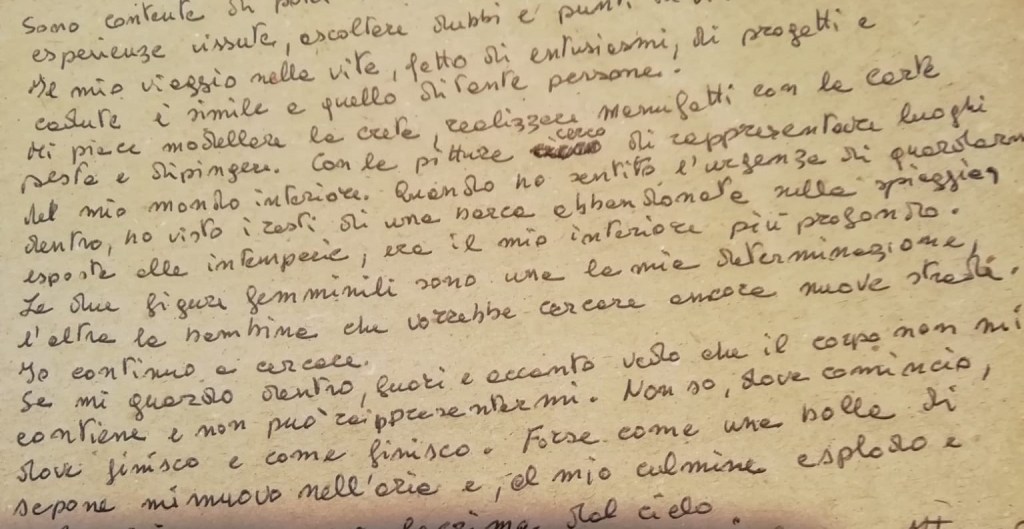 Sono contente di
esperienze vissute, ascoltare dubbi e punti
Il mio viaggio nella vita, fatto di entusiasmi, di progetti e
cadute è simile a quello di tante persone.
Mi piace modellare la creta, realizzare manufatti con la carta
pesta e dipingere. Con le pitture cerco di rappresentare luoghi
del mio mondo interiore. Quando ho sentito l'urgenza di guardarmi
dentro, ho visto i resti di una barca abbandonata sulla spiaggia,
esposta alle intemperie, era il mio interiore più profondo.
Le due figure femminili sono una la mia determinazione,
l'altra la bambina che vorrebbe cercare ancora nuove strade.
Io continuo a cercare.
Se mi guardo dentro, fuori e accanto vedo che il corpo non mi
contiene e non può rappresentarmi. Non so, dove comincio,
dove finisco e come finisco. Forse come una bolla di
sapone mi muovo nell'aria e, al mio culmine esplodo e
dal cielo.